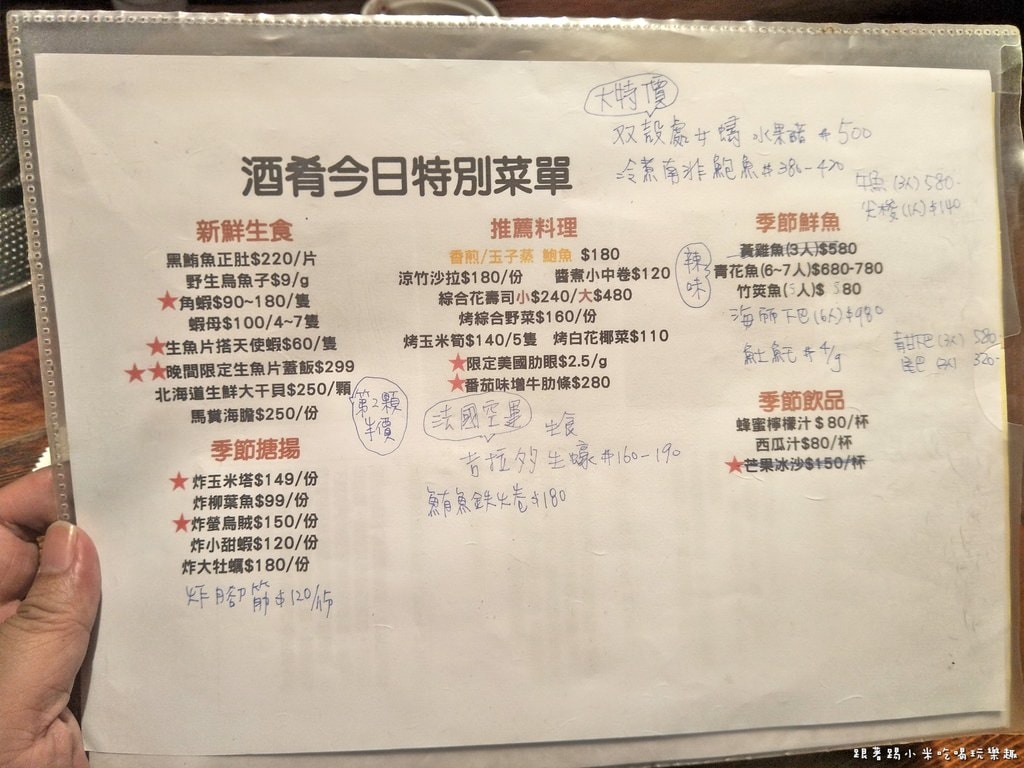 大特價
双殼處女蟳 水果醋 #500
冷煮南非鮑魚 #380-420
午魚(3人)580-
(1人)$140
酒肴今日特別菜單
新鮮生食
黑鮪魚正肚$220/片
野生烏魚子$9/g
★角蝦$90~180/隻
蝦母$100/4~7隻
★生魚片搭天使蝦$60/隻
★★晚間限定生魚片蓋飯$299
北海道生鮮大干貝$250/顆
第2顆
半價
馬糞海膽$250/份
季節搪揚
★炸玉米塔$149/份
炸柳葉魚$99/份
★炸螢烏賊$150/份
炸小甜蝦$120/份
炸大牡蠣$180/份
炸月卻筋$120/份
推薦料理
香煎/玉子蒸 鮑魚 $180
涼竹沙拉$180/份 醬煮小中卷$120
辣味
綜合花壽司小$240/大$480
烤綜合野菜$160/份
烤玉米筍$140/5隻 烤白花椰菜$110
★限定美國肋眼$2.5/g
★番茄味增牛肋條$280
法國空運
生食
吉拉多生蠔 #160-190
鮪魚鉄火卷$180
季節鮮魚
黃雞魚(3人)$580
青花魚(6~7人)$680-780
竹筴魚( 人)$ 80
海師下巴(6人)$980
魠魠 #4/g
下巴(3人)580-
尾巴 320-
季節飲品
蜂蜜檸檬汁$80/杯
西瓜汁$80/杯
★芒果冰沙$150/杯
跟著踢小米吃喝玩樂趣